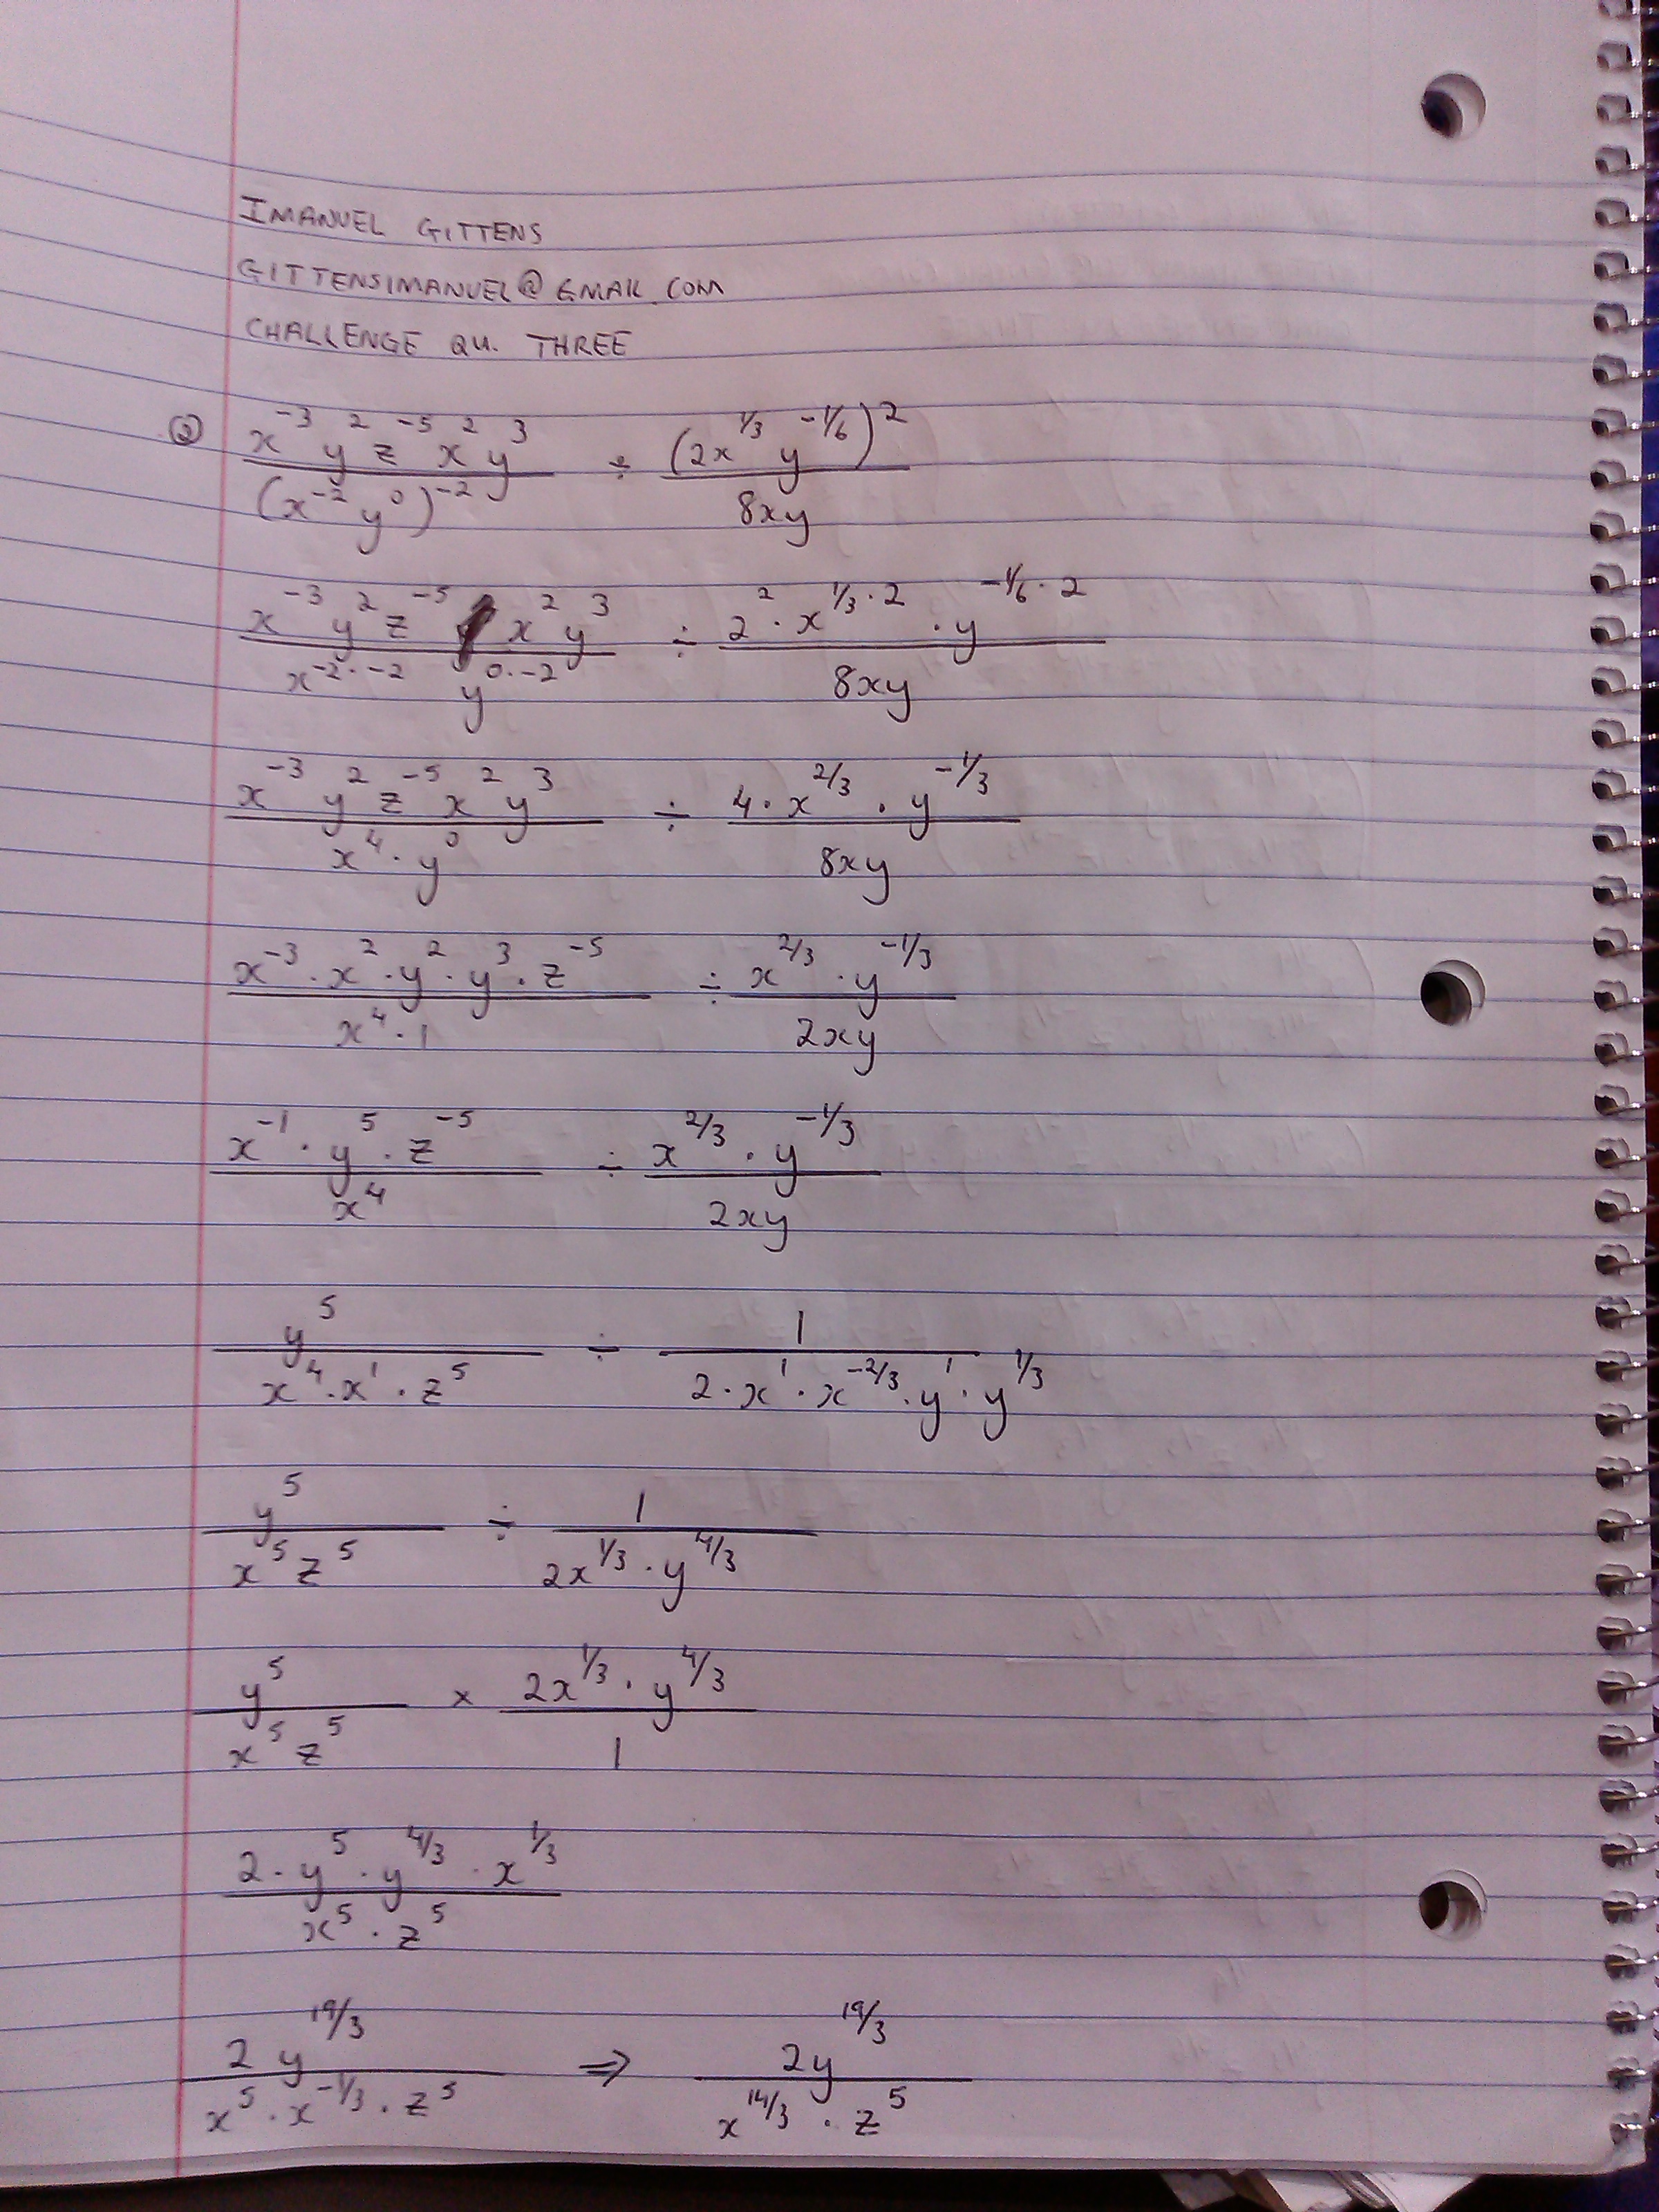 IMANUEL GITTENS
GITTENSIMANUEL@GMAIL.COM
CHALLENGE QU. THREE
② x^-3 y^2 z^-5 x^2 y^3 / (x^-2 y^0)^-2 ÷ (2x^1/3 y^-1/6)^2 / 8xy
x^-3 y^2 z^-5 x^2 y^3 / x^-2·-2 y^0·-2 ÷ 2^2 · x^1/3·2 · y^-1/6·2 / 8xy
x^-3 y^2 z^-5 x^2 y^3 / x^4 · y^0 ÷ 4 · x^2/3 · y^-1/3 / 8xy
x^-3 · x^2 · y^2 · y^3 · z^-5 / x^4 · 1 ÷ x^2/3 · y^-1/3 / 2xy
x^-1 · y^5 · z^-5 / x^4 ÷ x^2/3 · y^-1/3 / 2xy
y^5 / x^4 · x^1 · z^5 ÷ 1 / 2 · x^1 · x^-2/3 · y^1 · y^1/3
y^5 / x^5 z^5 ÷ 1 / 2x^1/3 · y^4/3
y^5 / x^5 z^5 × 2x^1/3 · y^4/3 / 1
2 · y^5 · y^4/3 · x^1/3 / x^5 · z^5
2 y^19/3 / x^5 · x^-1/3 · z^5 ⇒ 2y^19/3 / x^14/3 · z^5